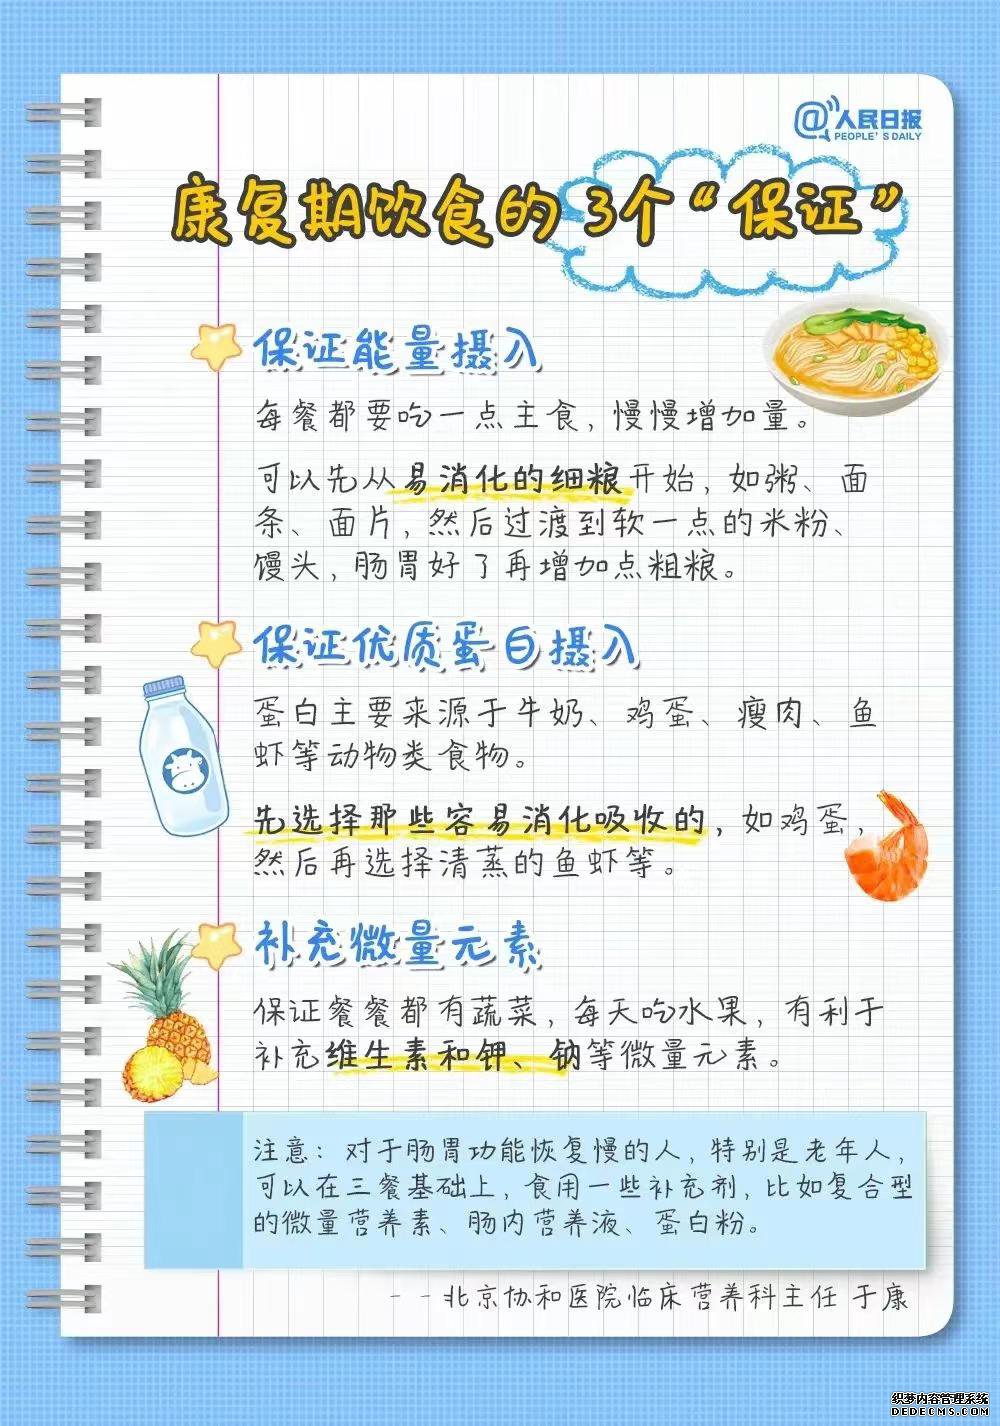 @人民日报
PEOPLE'S DAILY
康复期饮食的3个“保证”
保证能量摄入
每餐都要吃一点主食，慢慢增加量。
可以先从易消化的细粮开始，如粥、面
条、面片，然后过渡到软一点的米粉、
馒头，肠胃好了再增加点粗粮。
保证优质蛋白摄入
蛋白主要来源于牛奶、鸡蛋、瘦肉、鱼
虾等动物类食物。
先选择那些容易消化吸收的，如鸡蛋，
然后再选择清蒸的鱼虾等。
补充微量元素
保证餐餐都有蔬菜，每天吃水果，有利于
补充维生素和钾、钠等微量元素。
注意：对于肠胃功能恢复慢的人，特别是老年人，
可以在三餐基础上，食用一些补充剂，比如复合型
的微量营养素、肠内营养液、蛋白粉。
--北京协和医院临床营养科主任 于康
织梦内容管理系统
DEDECMS.COM